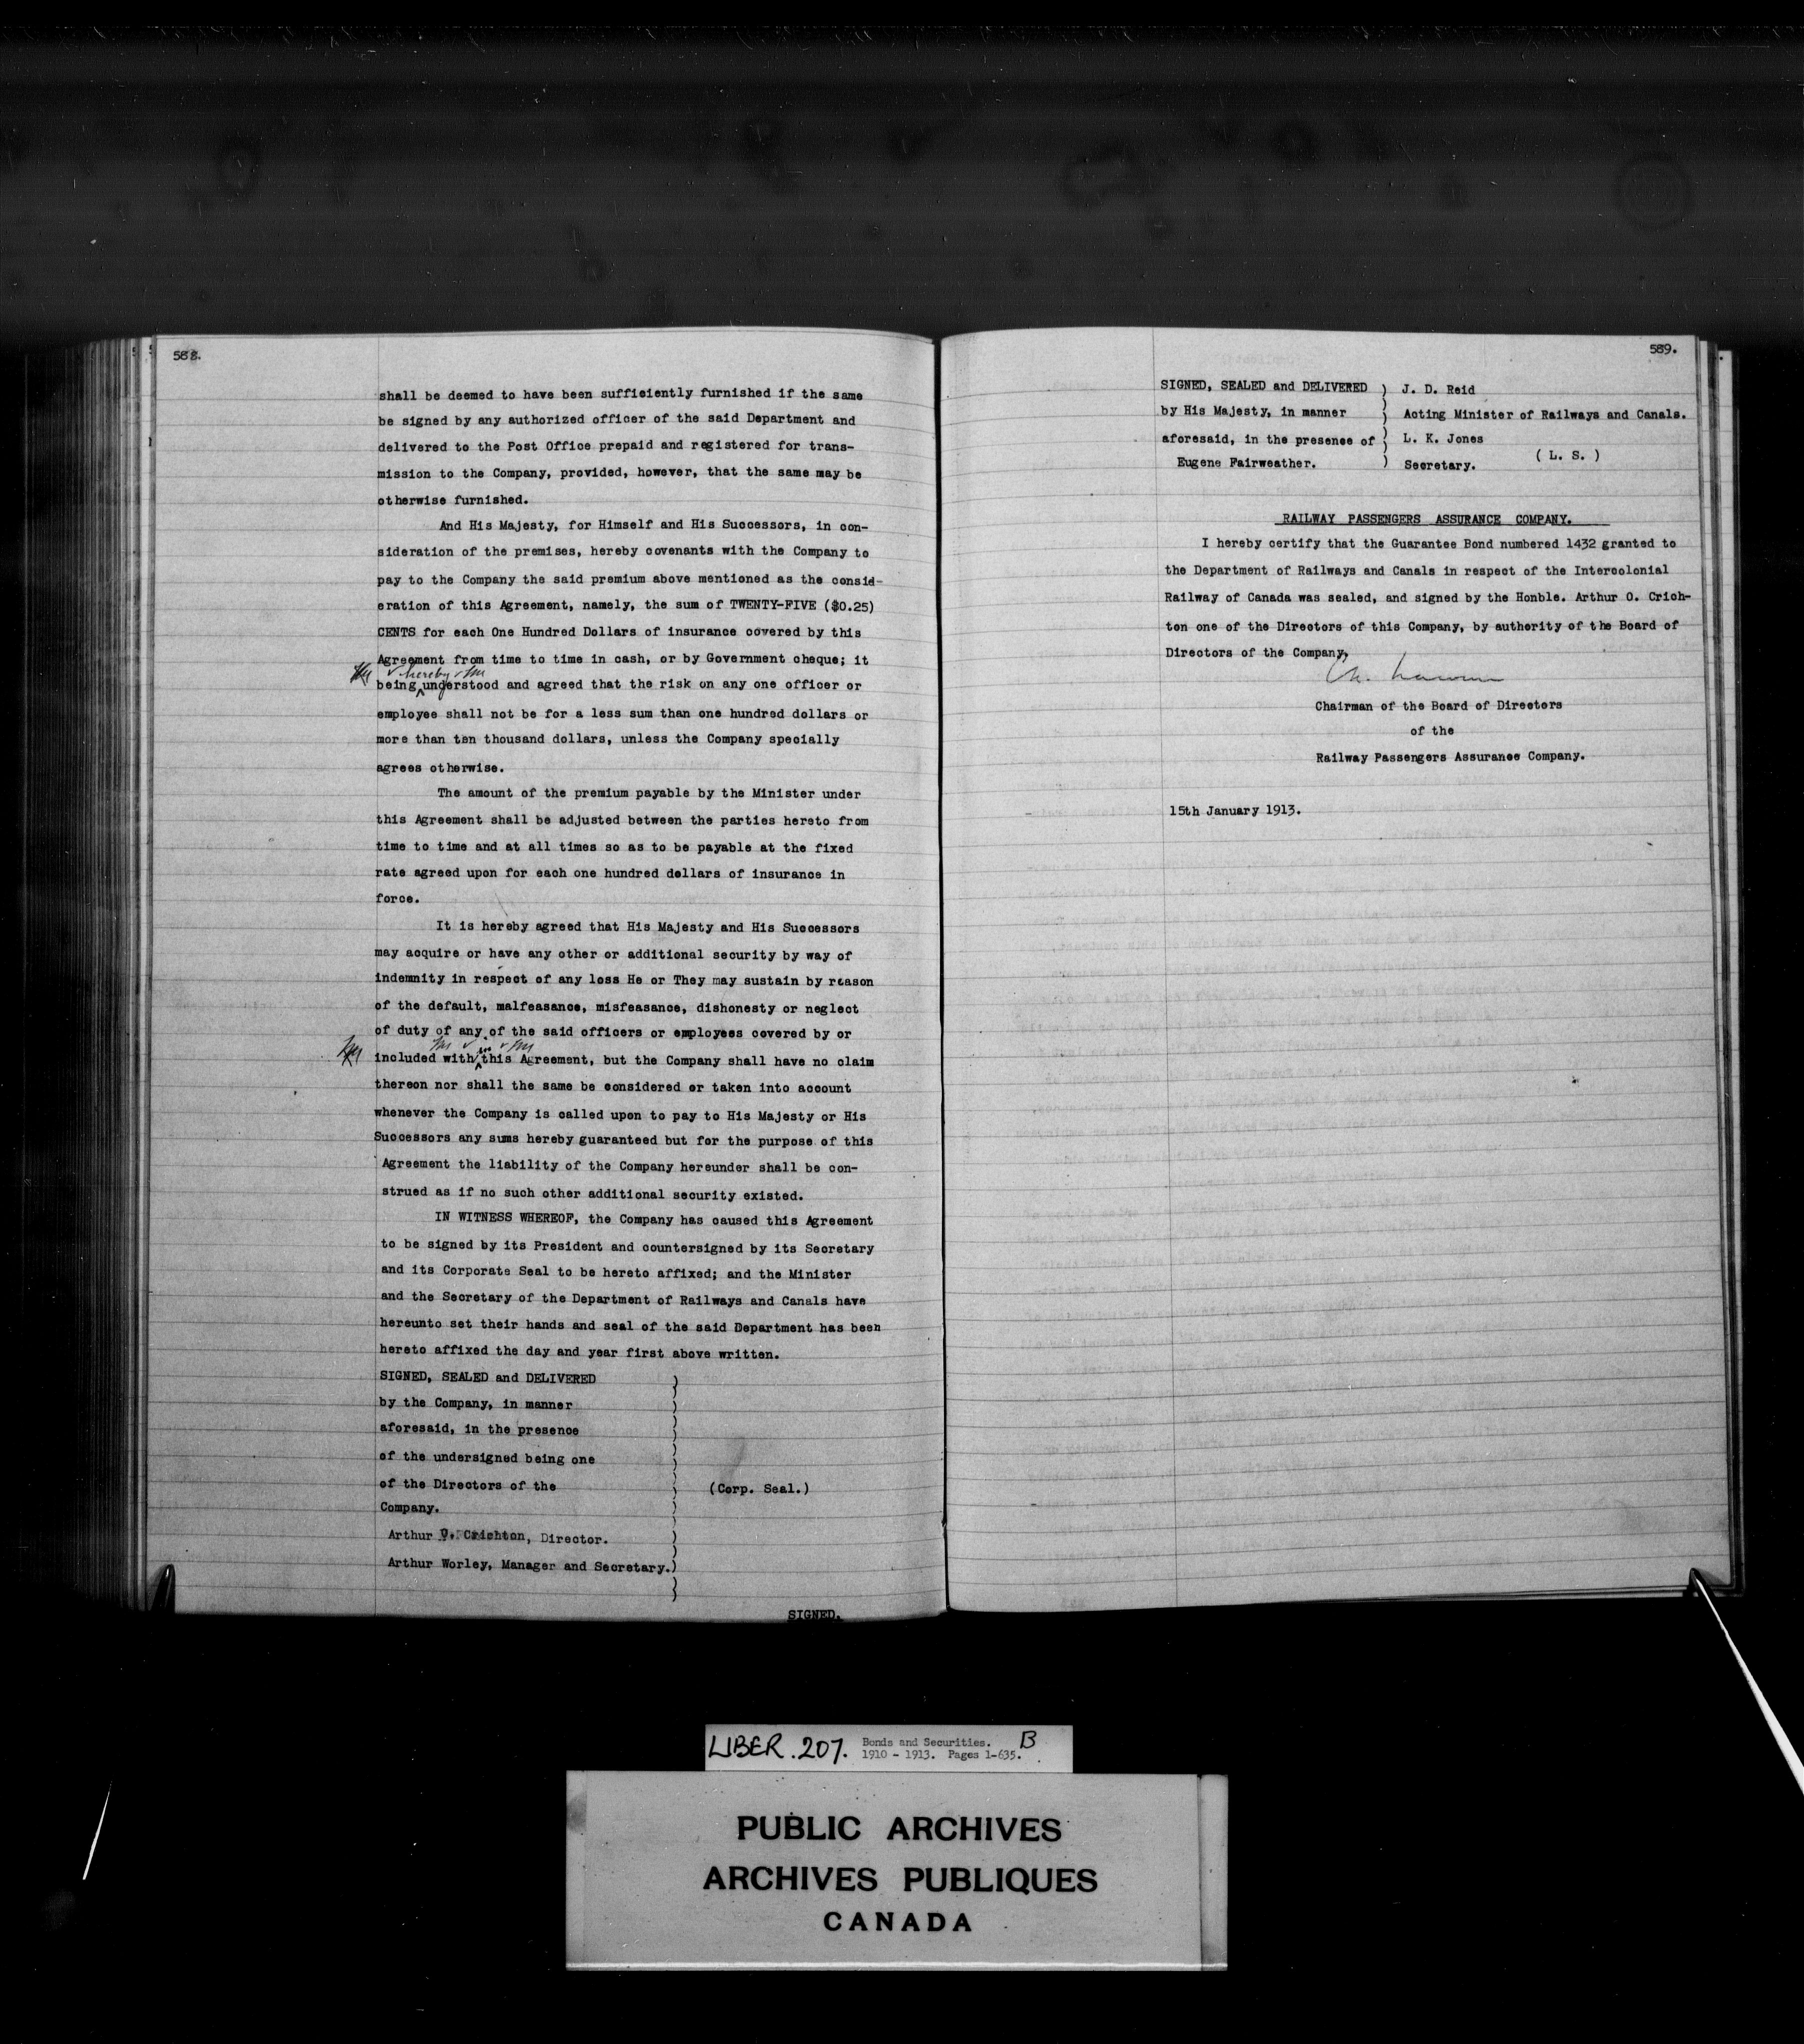 588.
shall be deemed to have been sufficiently furnished if the same
be signed by any authorized officer of the said Department and
delivered to the Post Office prepaid and registered for trans-
mission to the Company, provided, however, that the same may be
otherwise furnished.
And His Majesty, for Himself and His Successors, in con-
sideration of the premises, hereby covenants with the Company to
pay to the Company the said premium above mentioned as the consid-
eration of this Agreement, namely, the sum of TWENTY-FIVE ($0.25)
CENTS for each One Hundred Dollars of insurance covered by this
Agreement from time to time in cash, or by Government cheque; it
hereby
being understood and agreed that the risk on any one officer or
employee shall not be for a less sum than one hundred dollars or
more than ten thousand dollars, unless the Company specially
agrees otherwise.
The amount of the premium payable by the Minister under
this Agreement shall be adjusted between the parties hereto from
time to time and at all times so as to be payable at the fixed
rate agreed upon for each one hundred dollars of insurance in
force.
It is hereby agreed that His Majesty and His Successors
may acquire or have any other or additional security by way of
indemnity in respect of any loss He or They may sustain by reason
of the default, malfeasance, misfeasance, dishonesty or neglect
of duty of any of the said officers or employees covered by or
in
included with this Agreement, but the Company shall have no claim
thereon nor shall the same be considered or taken into account
whenever the Company is called upon to pay to His Majesty or His
Successors any sums hereby guaranteed but for the purpose of this
Agreement the liability of the Company hereunder shall be con-
strued as if no such other additional security existed.
IN WITNESS WHEREOF, the Company has caused this Agreement
to be signed by its President and countersigned by its Secretary
and its Corporate Seal to be hereto affixed; and the Minister
and the Secretary of the Department of Railways and Canals have
hereunto set their hands and seal of the said Department has been
hereto affixed the day and year first above written.
SIGNED, SEALED and DELIVERED
by the Company, in manner
aforesaid, in the presence
of the undersigned being one
of the Directors of the
(Corp. Seal.)
Company.
Arthur O. Crichton, Director.
Arthur Worley, Manager and Secretary.
SIGNED.
589.
SIGNED, SEALED and DELIVERED ) J. D. Reid
by His Majesty, in manner ) Acting Minister of Railways and Canals.
aforesaid, in the presence of ) L. K. Jones
( L. S. )
Eugene Fairweather. ) Secretary.
RAILWAY PASSENGERS ASSURANCE COMPANY.
I hereby certify that the Guarantee Bond numbered 1432 granted to
the Department of Railways and Canals in respect of the Intercolonial
Railway of Canada was sealed, and signed by the Honble. Arthur O. Crich-
ton one of the Directors of this Company, by authority of the Board of
Directors of the Company,
Chairman of the Board of Directors
of the
Railway Passengers Assurance Company.
15th January 1913.
LIBER. 207. Bonds and Securities. B
1910 - 1913. Pages 1-635.
PUBLIC ARCHIVES
ARCHIVES PUBLIQUES
CANADA